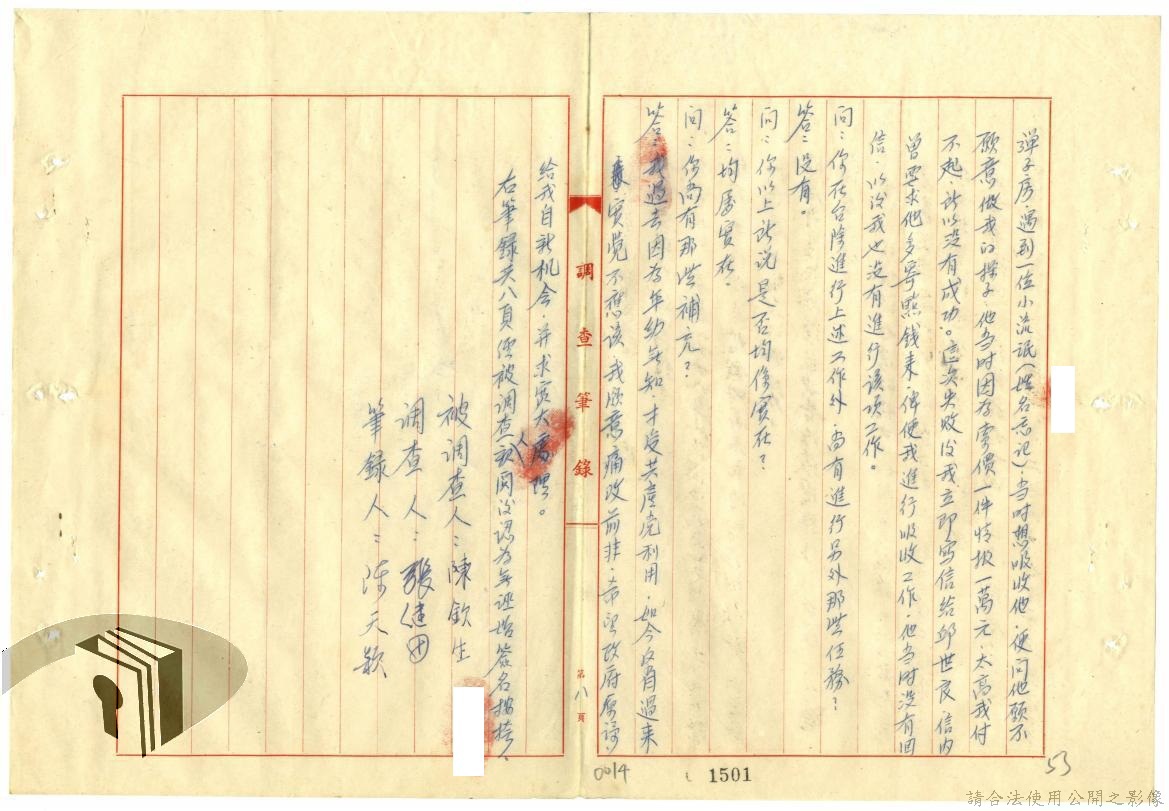 彈子房，遇到一位小流氓（姓名忘記），当时想吸收他，便问他願不
願意做我的探子，他当时因为索價一件情报一萬元，太高我付
不起，所以没有成功。這次失敗後我立即写信给邱世良，信内
曾要求他多寄點錢来，俾使我進行吸收工作，他当时没有回
信，以後我也没有進行该項工作。
问：你在台除進行上述工作外，尚有進行另外那些任務？
答：没有。
问：你以上所说是否均係實在？
答：均屬實在。
问：你尚有那些補充？
答：我過去因为年幼無知，才受共產党利用，如今反省過来，
實覚不應該，我願意痛改前非，希望政府原諒，
给我自新机会，并求寬大處理。
右筆録共八頁經被調查人親閱後認为無誣始簽名按捺、
被调查人：陳欽生
调查人：張健
筆録人：陈天穎
調查筆錄
第八頁
0014
1501
53
請合法使用公開之影像